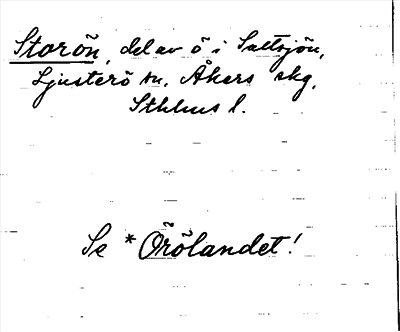 Storön, del av ö i Saltsjön,
Ljusterö sn. Åkers skg,
Sthlms l.
Se *Örölandet!